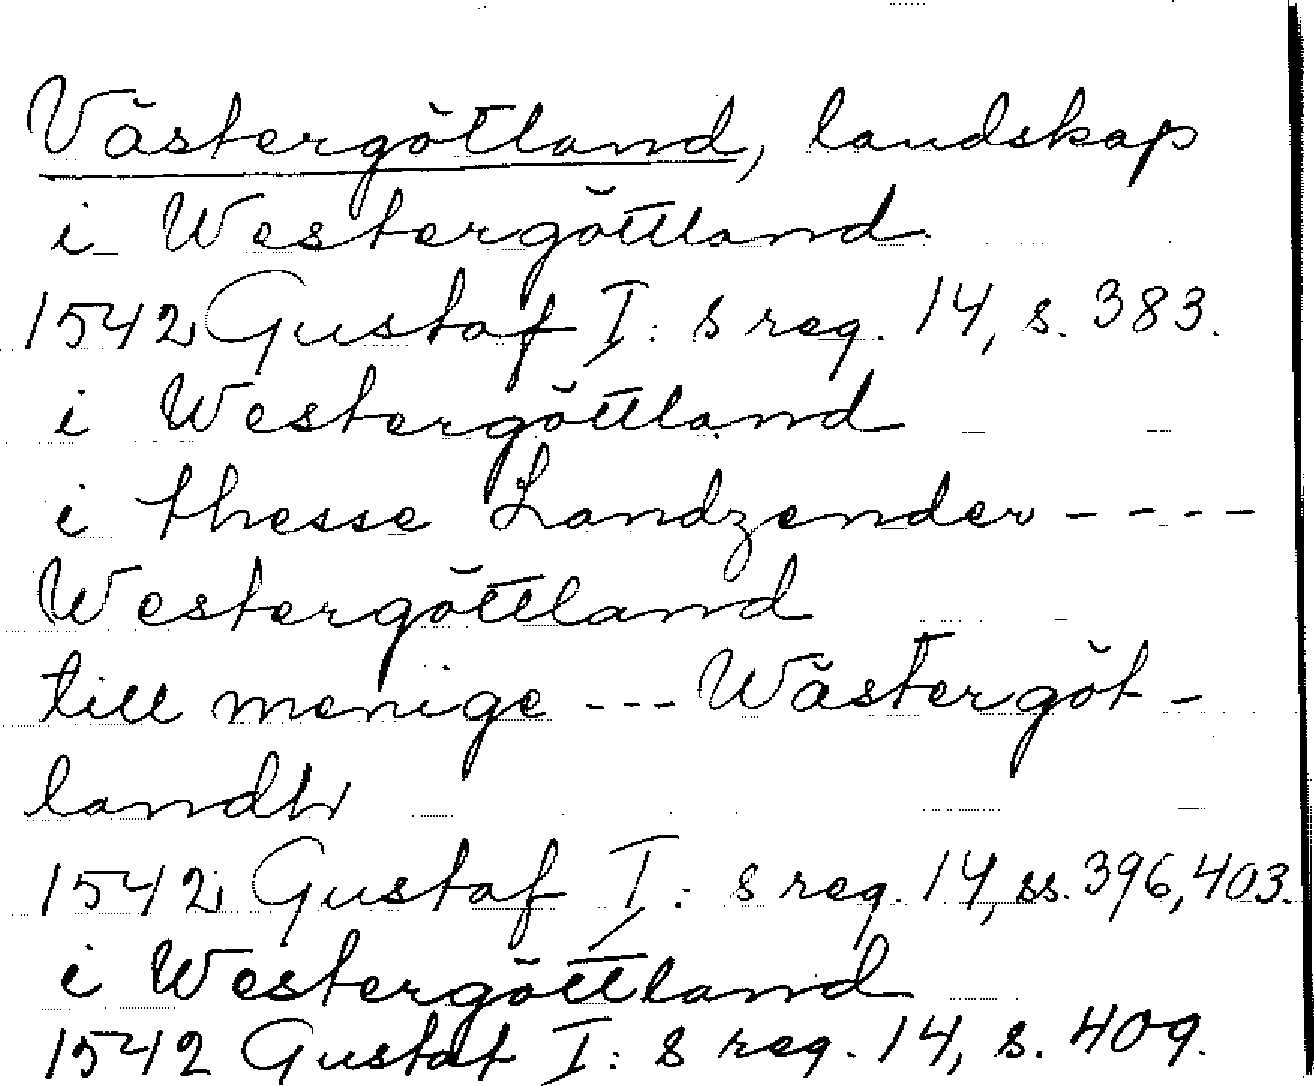 Västergötland, landskap
i Westergöttland
1542 Gustaf I: s reg. 14, s. 383.
i Westergöttland
i thesse Landzender ----
Westergöttland
till menige --- Wästergöt-
landh
1542 Gustaf I: s reg. 14, ss. 396, 403.
i Westergöttland
1542 Gustaf I: s reg. 14, s. 409.